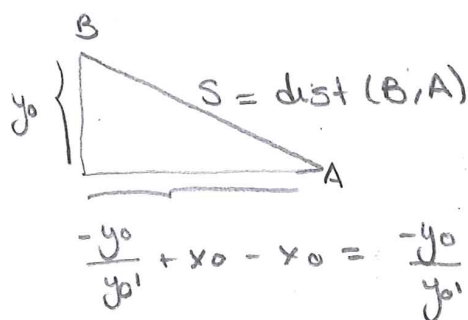 B
y₀
S = dist (B, A)
A
-y₀/y₀' + x₀ - x₀ = -y₀/y₀'